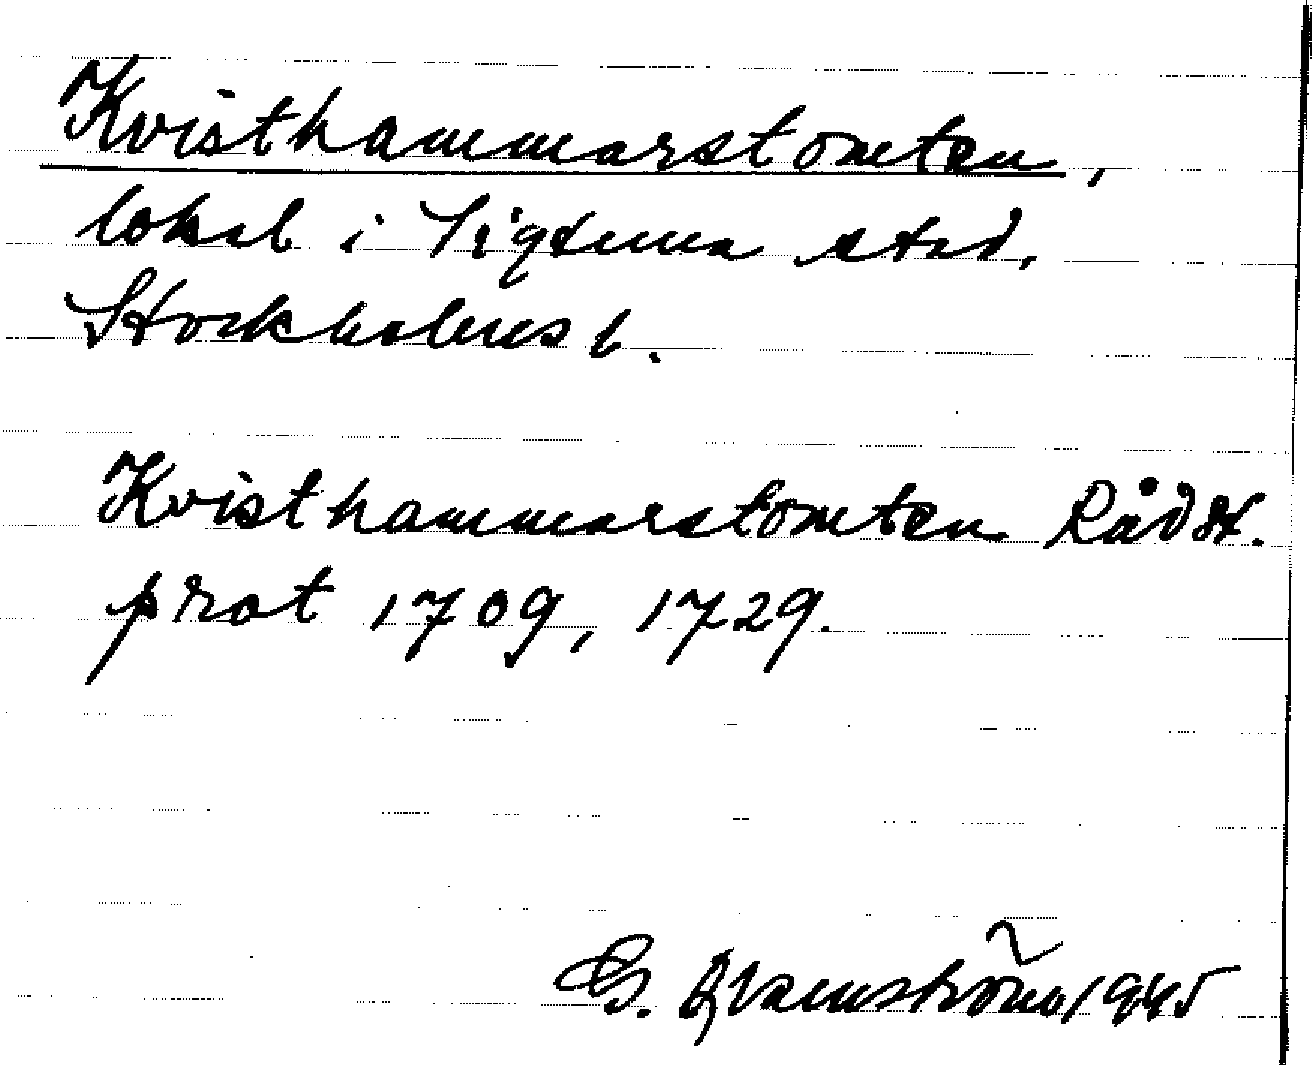 Kvisthammarstomten,
lokal i Sigtuna stad,
Stockholms l.
Kvisthammarstomten Rådst.
prot 1709, 1729.
G. Qvarnström 1945